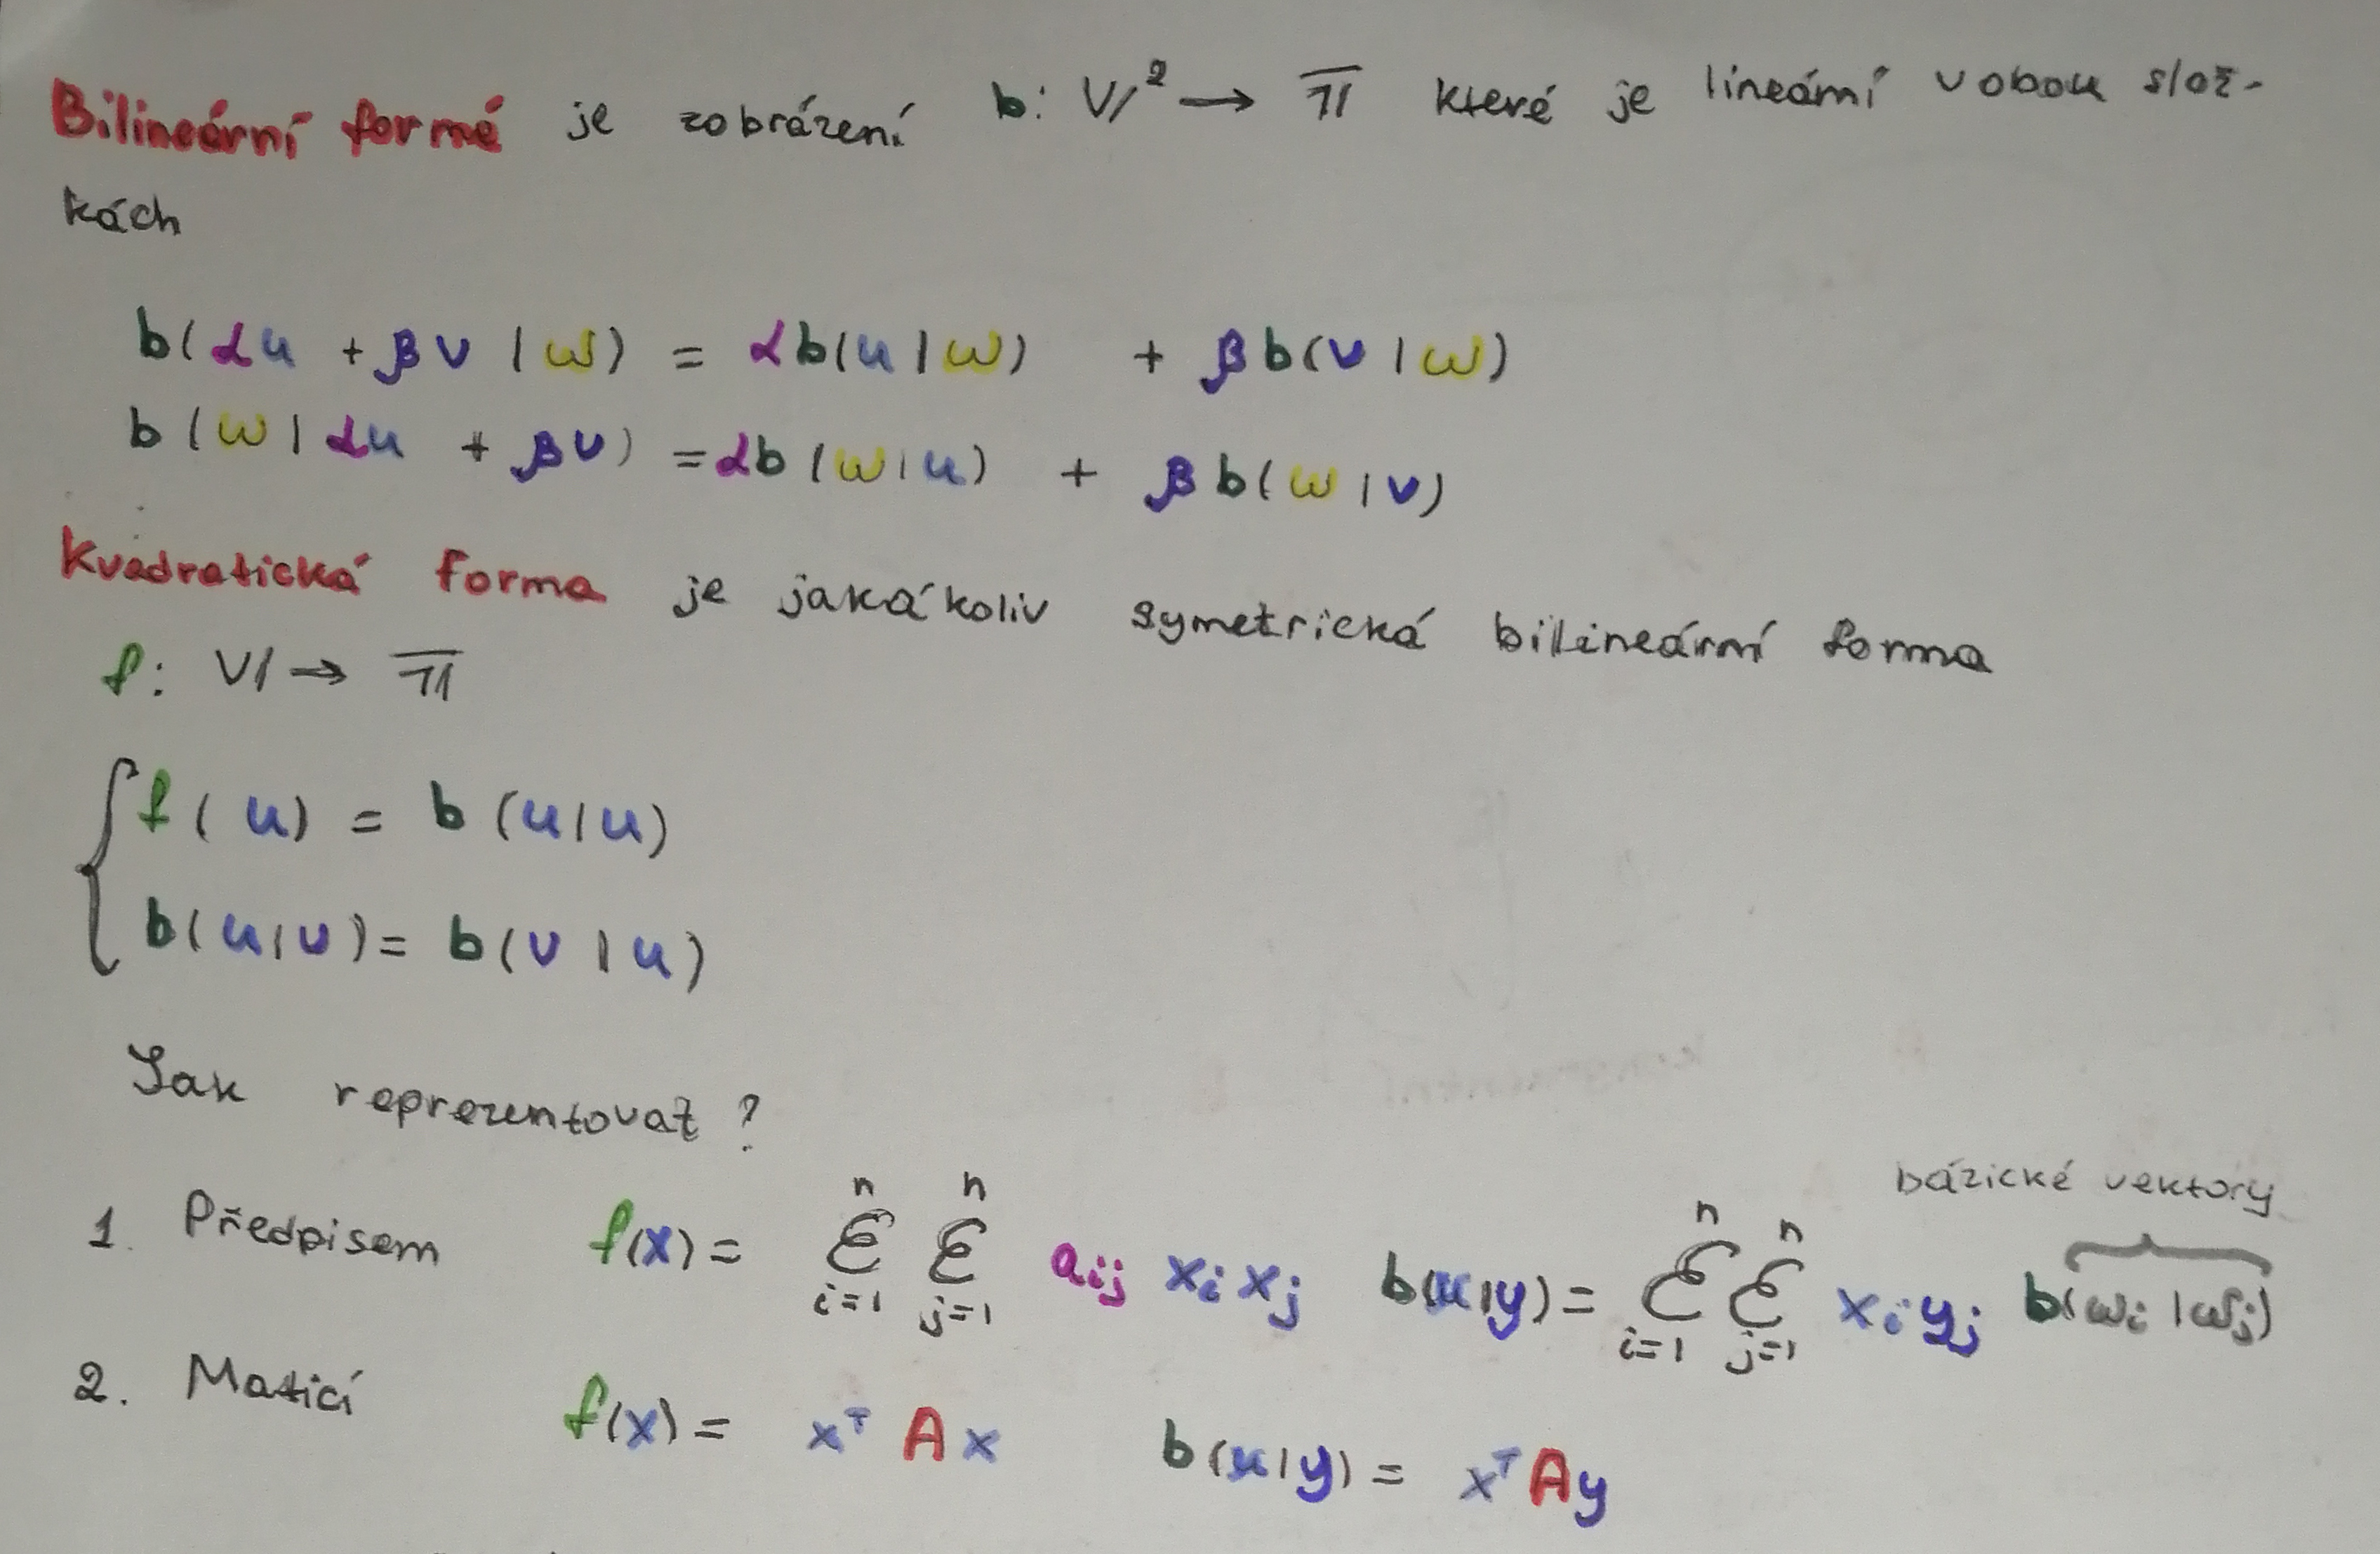 Bilineární formá je zobrázení b: V² → 𝕋 které je lineární v obou slož-
kách
b(αu + βv | w) = αb(u | w) + βb(v | w)
b(w | αu + βv) = αb(w | u) + βb(w | v)
Kvadratická forma je jakákoliv symetrická bilineární forma
f: V → 𝕋
f(u) = b(u | u)
b(u | v) = b(v | u)
Jak reprezentovat ?
bázické vektory
1. Předpisem f(x) = Σ_{i=1}^{n} Σ_{j=1}^{n} a_{ij} x_i x_j b(x | y) = Σ_{i=1}^{n} Σ_{j=1}^{n} x_i y_j b(w_i | w_j)
2. Maticí f(x) = x^T A x b(x | y) = x^T A y